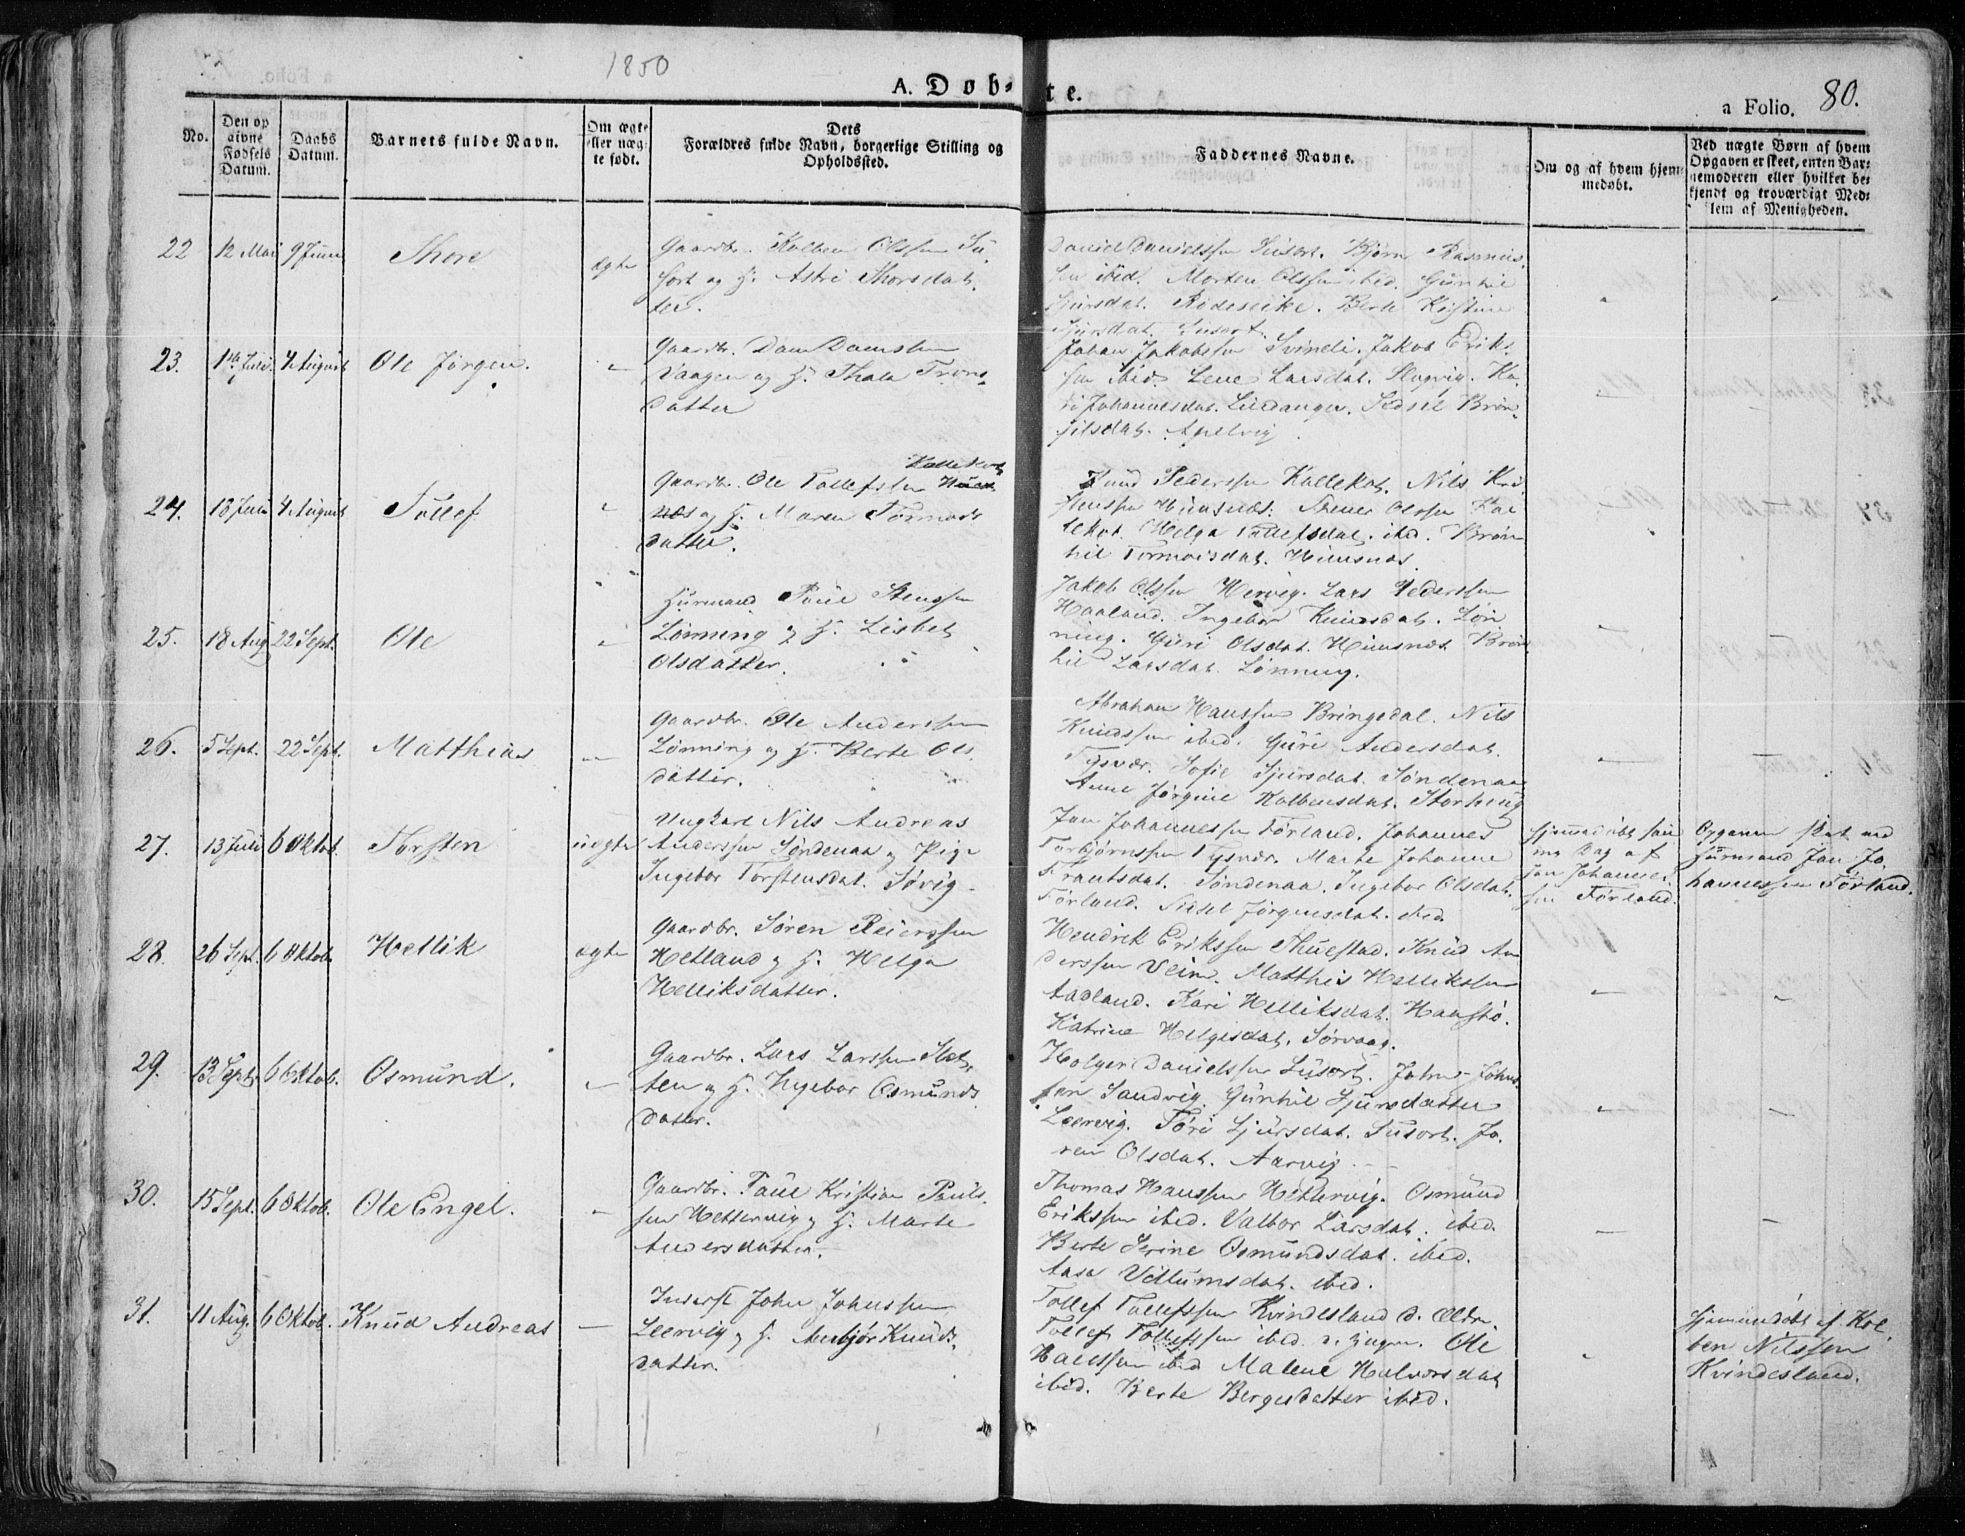 1850
A. Døb-te.
a Folio. 80.
No.
Den opgivne Fødsels Datum.
Daabs Datum.
Barnets fulde Navn.
Om ægte eller uægte født.
Dets Forældres fulde Navn, borgerlige Stilling og Opholdssted.
Faddernes Navne.
Om og af hvem hjemmedøbt.
Ved uægte Børn af hvem Opgaven er skeet, enten Barnemoderen eller hvilket bekjendt og troværdigt Medlem af Menigheden.
22 12 Mai 9 Juni Thore ægte
Gaardbr. Kolben Olssen Su-
sort og H. Astri Thorsdat-
ter.
Daniel Danielssen Susort. Bjørn Rasmus-
sen ibid. Morten Olssen ibid. Gunhil
Sjursdat. Rødeseike. Berte Kristine
Sjursdat. Susort
23. 1ste Juli. 4 August Ole Jørgen. "
Gaardbr. Daniel
Vaagen og H. Thala Trons-
datter
Johan Jakobssen Svinali. Jakob Eriks-
sen ibid. Lene Larsdat. Slogvig. Ka-
ri Johannesdat. Liedanger. Sidsel Brøn-
jilsdat. Apelvig.
24. 13 Juli 4 August Tollef "
Gaardbr. Ole Tollefssen Kallekot
næs og H. Maren Tormods
datter.
Knud Pederssen Kallekot. Nils Kri-
stenssen Hinsnæs. Stener Olssen Kal-
lekot. Helga Tollefsdat. ibid. Brøn-
hil Tormodsdat. Hinsnæs.
25. 18 Aug 22 Sept. Ole "
Huusmand Poul Stenssen
Lønning og H. Lisbet
Olsdatter.
Jakob Olssen Hervig. Lars Pederssen
Haaland. Ingebor Knudsdat. Løn-
ning. Guri Olsdat. Hinsnæs. Brøn-
hil Larsdat. Lønning.
26. 5 Sept. 22 Sept. Matthias "
Gaardbr. Ole Anderssen
Lønning og H. Berte Ols-
datter.
Abrahan Hanssen Bringedal. Nils
Knudssen ibid. Guri Andersdat.
Tysvær. Sofie Sjursdat. Søndenaa
Anne Jørgine Kolbensdat. Storhaug
27. 13 Juli 6 Oktob. Torsten uægte
Ungkarl Nils Andreas
Anderssen Søndenaa og Pige
Ingebor Torstensdat. Søvig
Jan Johannessen Førland. Johannes
Torbjørnssen Tysvær. Marte Johanne
Frantsdat. Søndenaa. Ingebor Olsdat.
Førland. Sidsel Jørgensdat. ibid.
Hjemmedøbt sam-
me Dag af
Jan Johannes-
sen Førland.
Opgaven skal ved
Huusmand Jan Jo-
hannessen Førland.
28. 26 Sept. 6 Oktob. Hellik ægte
Gaardbr. Søren Reierssen
Hetland og H. Helga
Helliksdatter.
Hendrik Erikssen Thuestad. Knud An-
derssen Veim. Matthis Hellikssen
Aadland. Kari Helliksdat. Haustø.
Katrine Helgesdat. Sørvaag.
29. 13 Sept. 6 Oktob. Osmund. "
Gaardbr. Lars Larssen Slet-
ten og H. Ingebor Osmunds
datter.
Holger Danielssen Susort. John Johns-
sen Sandvig. Gunhil Sjursdatter
Leervig. Tøri Sjursdat. Susort. Jo-
ren Olsdat. Aarvig.
30. 15 Sept. 6 Oktob. Ole Engel. "
Gaardbr. Poul Kristian Pouls-
sen Hettervig og H. Marte
Andersdatter.
Thomas Hanssen Hettervig. Osmund
Erikssen ibid. Valbor Larsdat. ibid.
Berte Serine Osmundsdat. ibid.
Aasa Villumsdat. ibid.
31. 11 Aug. 6 Oktob. Knud Andreas "
Inderst John Johnssen
Leervig og H. Anbjør Knuds-
datter.
Tollef Tollefssen Kvindesland d. Ældr.
Tollef Tollefssen ibid. d. yngre. Ole
Hanssen ibid. Malene Halvorsdat
ibid. Berte Bergesdatter ibid.
Hjemmedøbt af Kol-
ben Nilssen
Kvindesland.